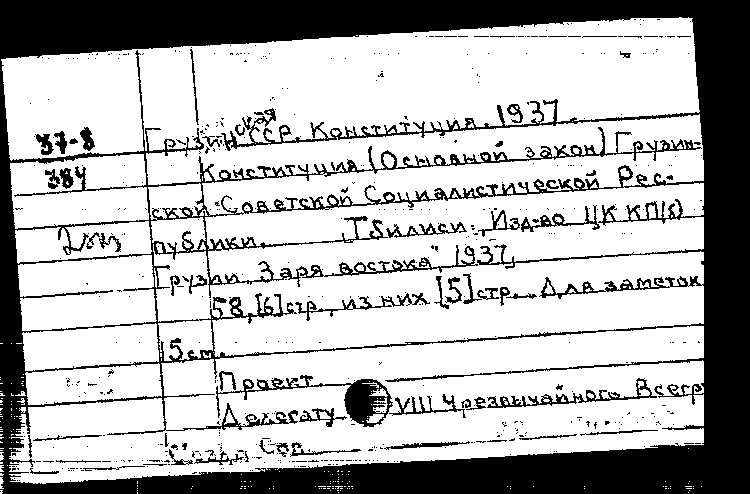 37-8
384
2 экз
Грузинская ССР. Конституция. 1937.
Конституция (Основной закон) Грузин-
ской Советской Социалистической Рес-
публики. [Тбилиси, Изд-во ЦК КП(б)
Грузии "Заря востока", 1937]
58,[6]стр., из них [5]стр. Для заметок
15 см.
Проект.
Делегату VIII Чрезвычайного Всегру
Съезда Сов.